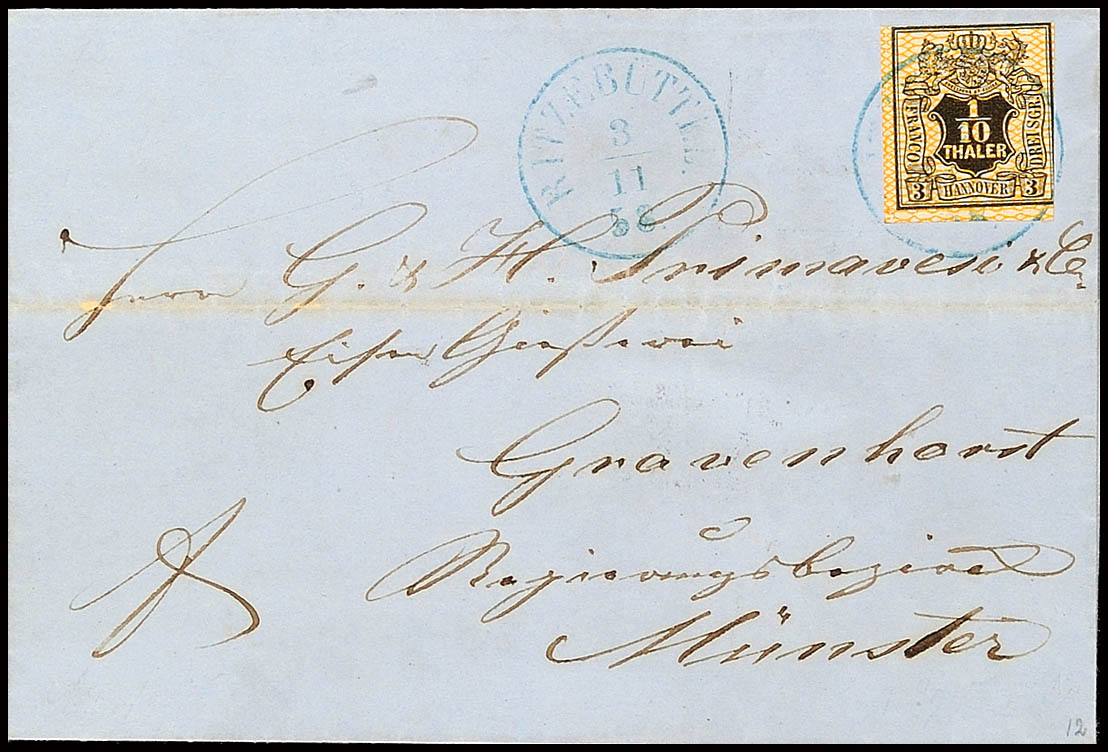 RITZEBÜTTEL
3
11
58
FRANCO
1
10
THALER
DREI SGR
3
HANNOVER
3
Herrn G. & H. Primavesi & Co
Eisen Gießerei
Gravenhorst
Regierungsbezirk
Münster
12